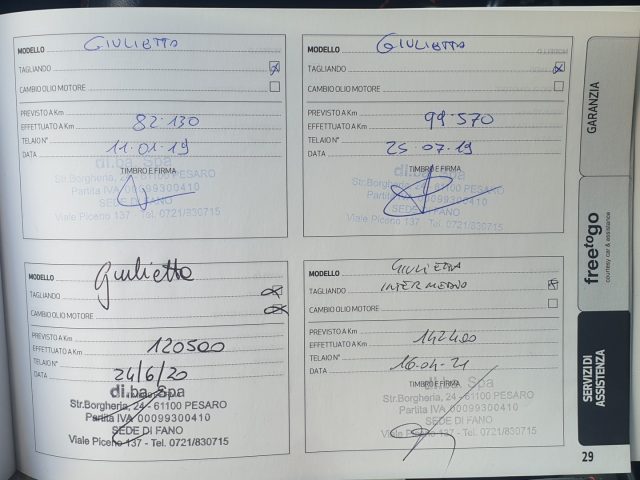 MODELLO GIULIETTA
TAGLIANDO
CAMBIO OLIO MOTORE
PREVISTO A Km
EFFETTUATO A Km 82.130
TELAIO N°
DATA 11.01.19
TIMBRO E FIRMA
di.ba. Spa
Str.Borgheria, 24 - 61100 PESARO
Partita IVA 00099300410
SEDE DI FANO
Viale Piceno 137 - Tel. 0721/830715
MODELLO GIULIETTA
TAGLIANDO
CAMBIO OLIO MOTORE
PREVISTO A Km
EFFETTUATO A Km 99.570
TELAIO N°
DATA 25.07.19
TIMBRO E FIRMA
di.ba. Spa
Str.Borgheria, 24 - 61100 PESARO
Partita IVA 00099300410
SEDE DI FANO
Viale Piceno 137 - Tel. 0721/830715
MODELLO Giulietta
TAGLIANDO
CAMBIO OLIO MOTORE
PREVISTO A Km
EFFETTUATO A Km 120500
TELAIO N°
DATA 24/6/20
di.ba. Spa
Str.Borgheria, 24 - 61100 PESARO
Partita IVA 00099300410
SEDE DI FANO
Viale Piceno 137 - Tel. 0721/830715
MODELLO GIULIETTA
TAGLIANDO INTERMEDIO
CAMBIO OLIO MOTORE
PREVISTO A Km
EFFETTUATO A Km 142400
TELAIO N°
DATA 16.04.21
TIMBRO E FIRMA
di.ba. Spa
Str.Borgheria, 24 - 61100 PESARO
Partita IVA 00099300410
SEDE DI FANO
Viale Piceno 137 - Tel. 0721/830715
GARANZIA
freetogo
courtesy car & assistance
SERVIZI DI
ASSISTENZA
29